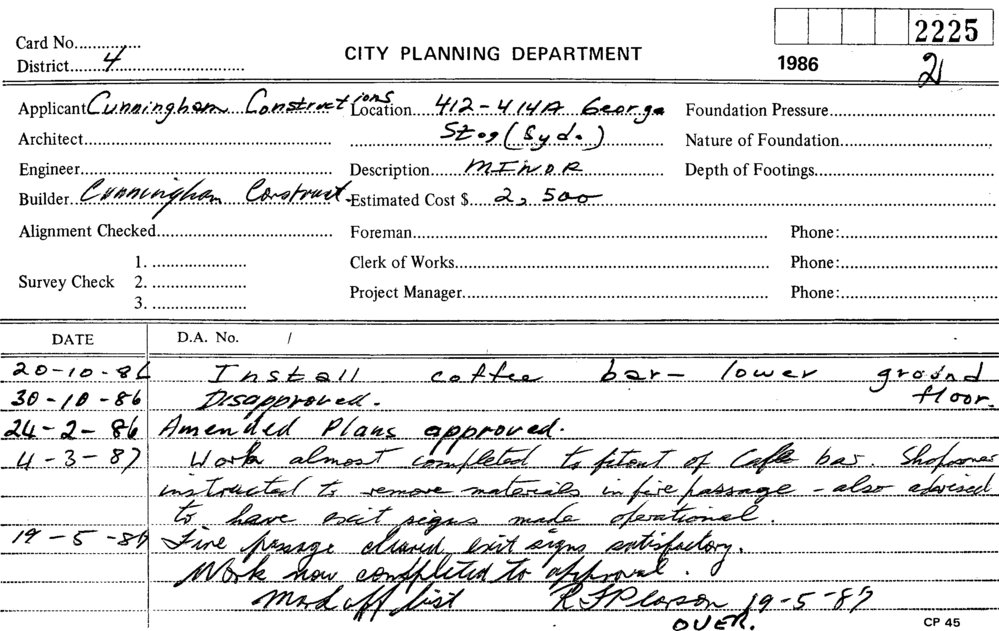 2225
Card No..............
District......4..............................
CITY PLANNING DEPARTMENT
1986
21
Applicant Cunningham Constructions Location....412-414A George Foundation Pressure..............................
Architect.................................................. St., (Syd.) Nature of Foundation............................
Engineer................................................. Description.....MINOR................ Depth of Footings................................
Builder. Cunningham Construct. Estimated Cost $.....2,500..............
Alignment Checked................................... Foreman............................................................... Phone:............................
1. ...................... Clerk of Works...................................................... Phone:............................
Survey Check 2. ......................
3. ...................... Project Manager.................................................... Phone:............................
DATE D.A. No. /
20-10-86 Install coffee bar- lower ground
30-10-86 Disapproved. floor.
24-2-86 Amended Plans approved.
4-3-87 Work almost completed to fitout of Cafe bar. Shopowner
instructed to remove materials in fire passage - also advised
to have exit signs made operational.
19-5-87 Fire passage cleared, exit signs satisfactory.
Work now completed to approval.
off list R 19-5-87
OVER.
CP 45